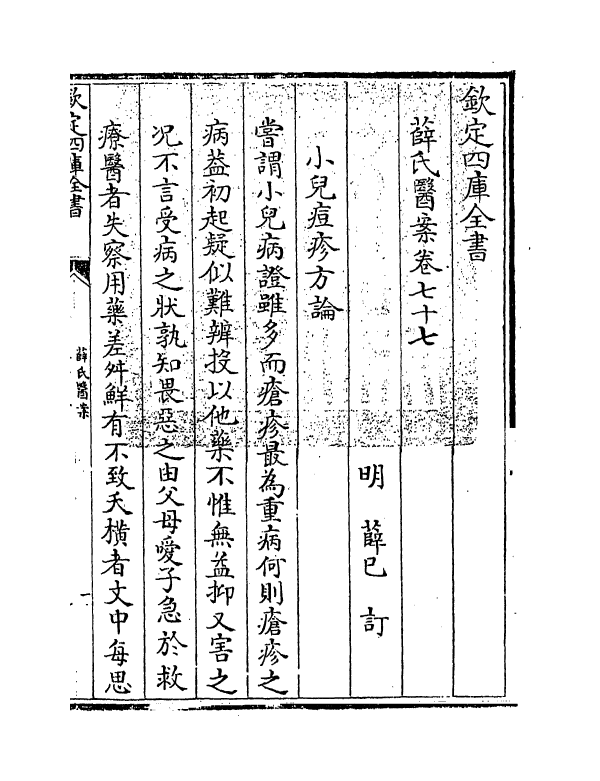 欽定四庫全書
薛氏醫案卷七十七
明 薛已 訂
小兒痘疹方論
嘗謂小兒病證雖多而瘡疹最為重病何則瘡疹之
病葢初起疑似難辨投以他藥不惟無益抑又害之
况不言受病之狀孰知畏惡之由父母愛子急於救
療醫者失察用藥差舛鮮有不致夭橫者文中每思
欽定四庫全書
薛氏醫案
一